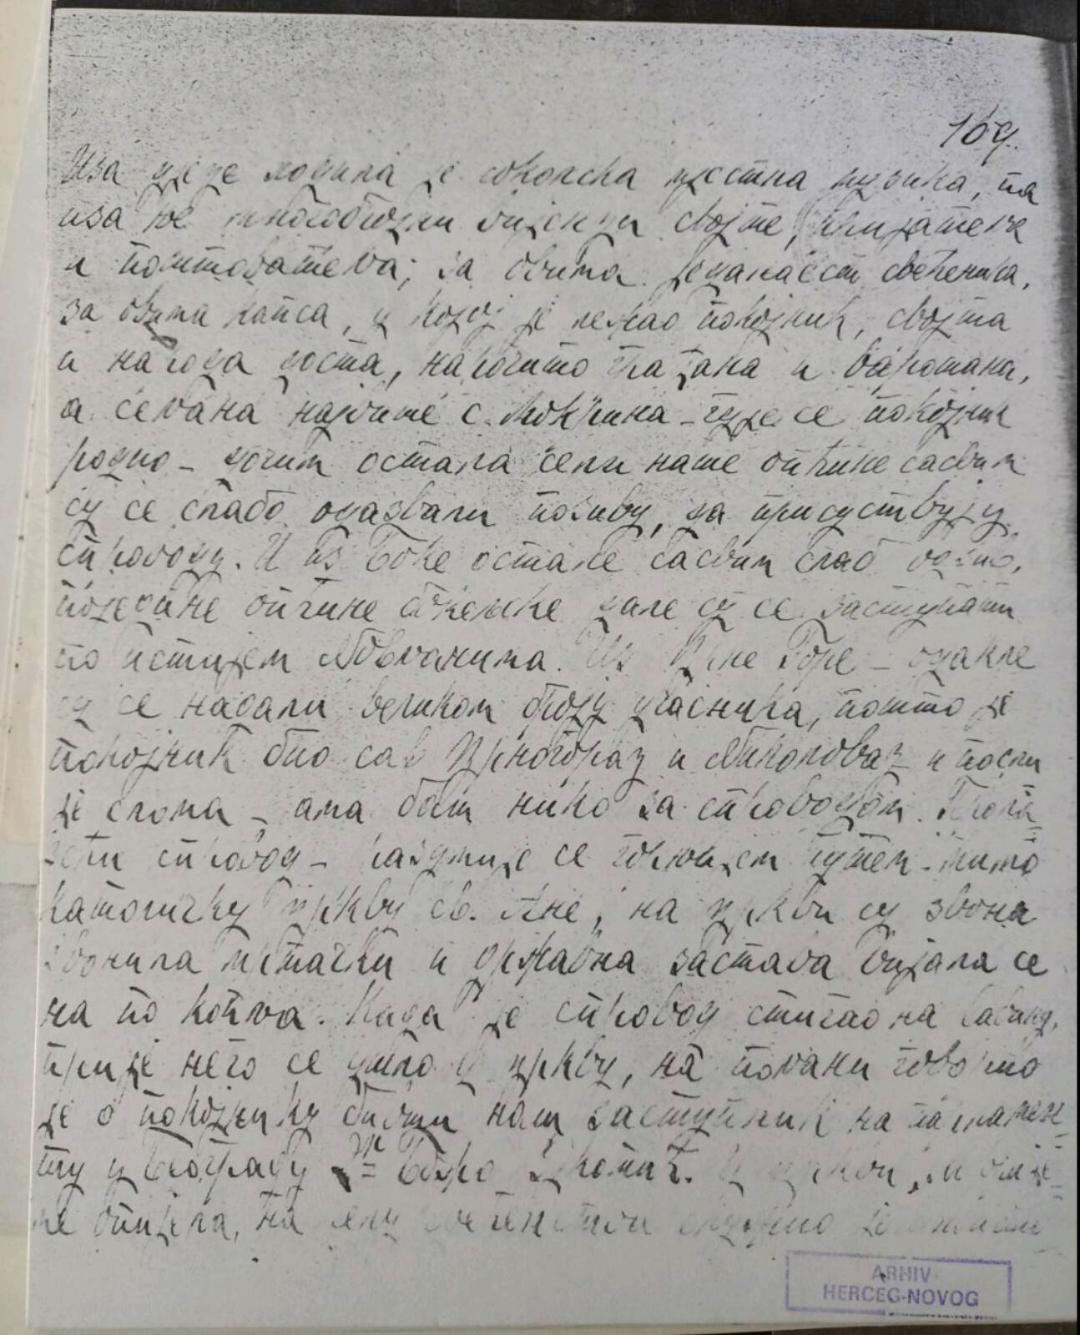 169.
Иза дјеце ходила је соколска мјестна музика, па
иза ње многобројни вијенци својте, пријатеља
и поштоватеља; за овима једанаест свећеника,
за овима капса, у којој је лежао покојник, својта
и народа доста, нарочито грађана и варошана,
а сељана највише с Мокрина - гдје се покојник
родио - дочим остала села наше опћине сасвим
су се слабо одазвали позиву, да присуствују
спроводу. И из Боке остале сасвим слаб одзив,
поједине опћине бокељске дале су се заступати
по истијем Новљанима. Из Црне Горе - одакле
су се надали великом броју учасника, пошто је
покојник био сав Црногорац и Николовац и посли
је слома - ама баш нико за спроводом.
спровод - разумије се горњијем путем - мимо
католичку цркву св. Ане, на цркви су звона
звонила мртвачки и државна застава вијала се
на по копља. Када је спровод стигао на Савину,
прије него се ушло у цркву, на пољани говорио
је о покојнику бивши наш заступник на парламен=
ту у Београду = Ђуро. У цркви,
је опијела, на
ARHIV
HERCEG-NOVOG